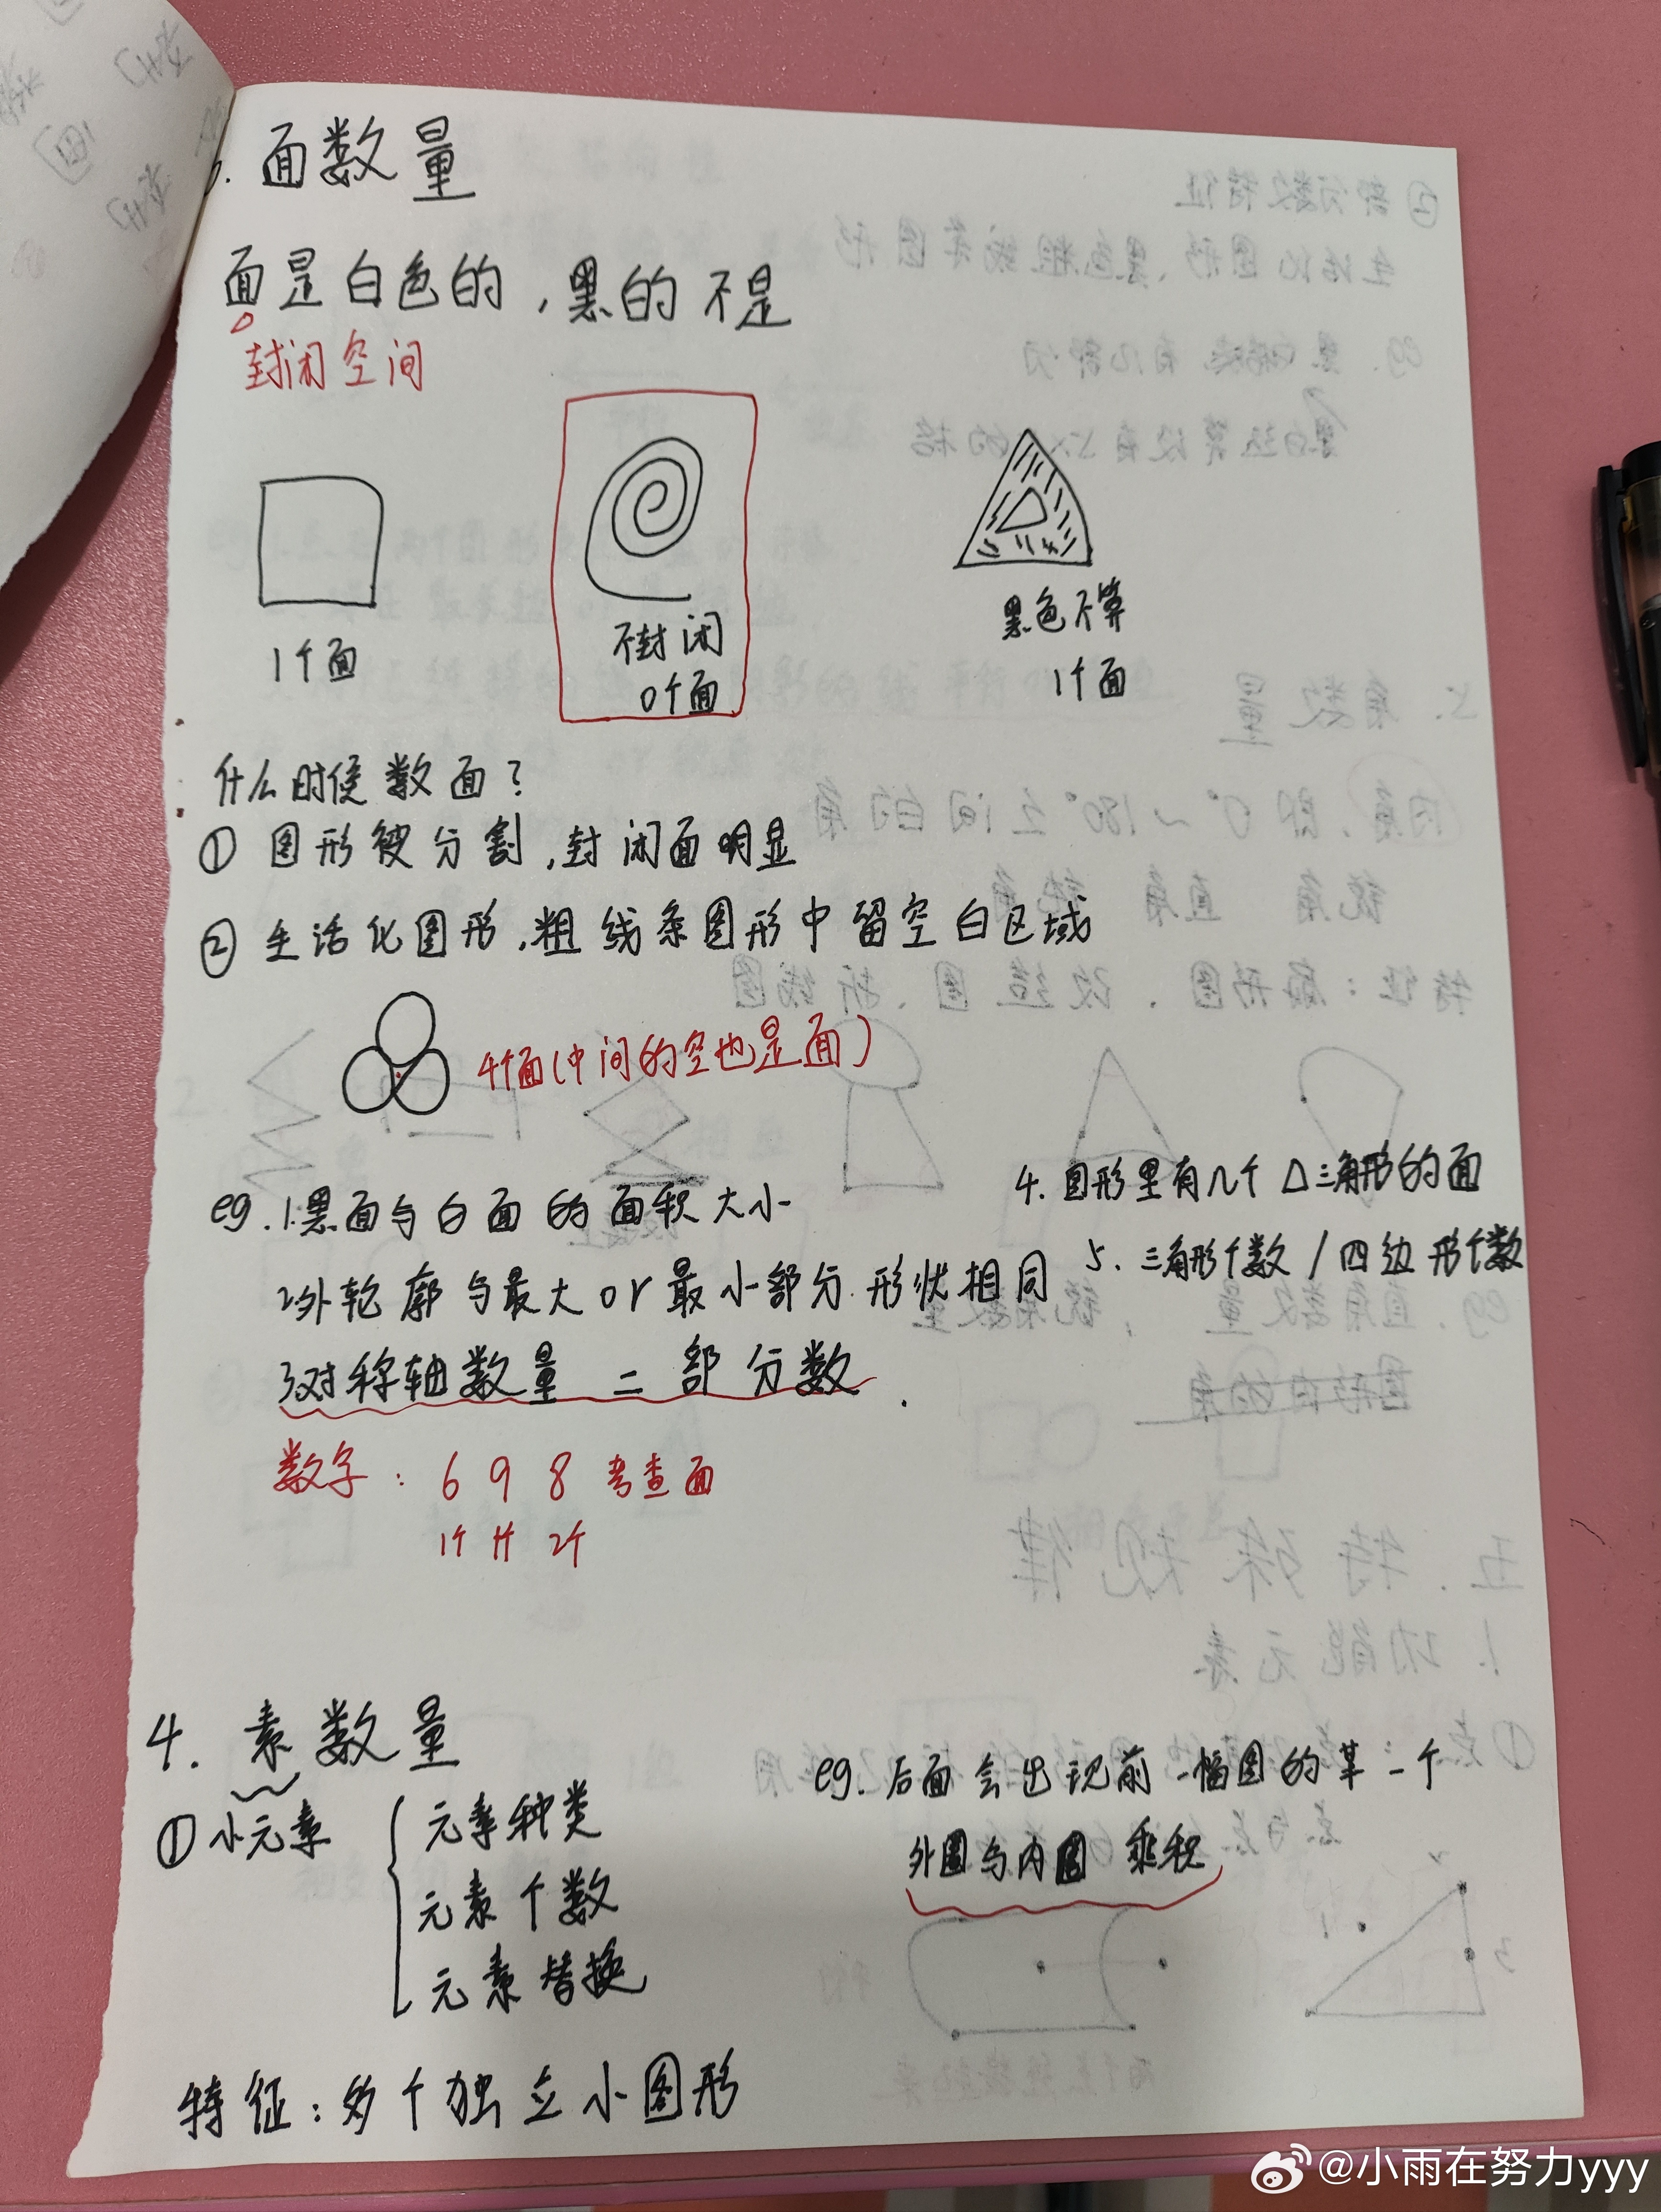 . 面数量
面是白色的,黑的不是
封闭空间
1个面
不封闭
0个面
黑色不算
1个面
什么时侯数面?
① 图形被分割,封闭面明显
② 生活化图形,粗线条图形中留空白区域
4个面(中间的空也是面)
eg. 1.黑面与白面的面积大小
2.外轮廓与最大or最小部分形状相同
3.对称轴数量 = 部分数.
4. 图形里有几个△三角形的面
5. 三角形个数/四边形个数
数字: 6 9 8 考查面
1个 1个 2个
4. 素数量
① 小元素
元素种类
元素个数
元素替换
eg. 后面会出现前一幅图的某一个
外圈与内圈 乘积
特征:多个独立小图形
@小雨在努力yyy